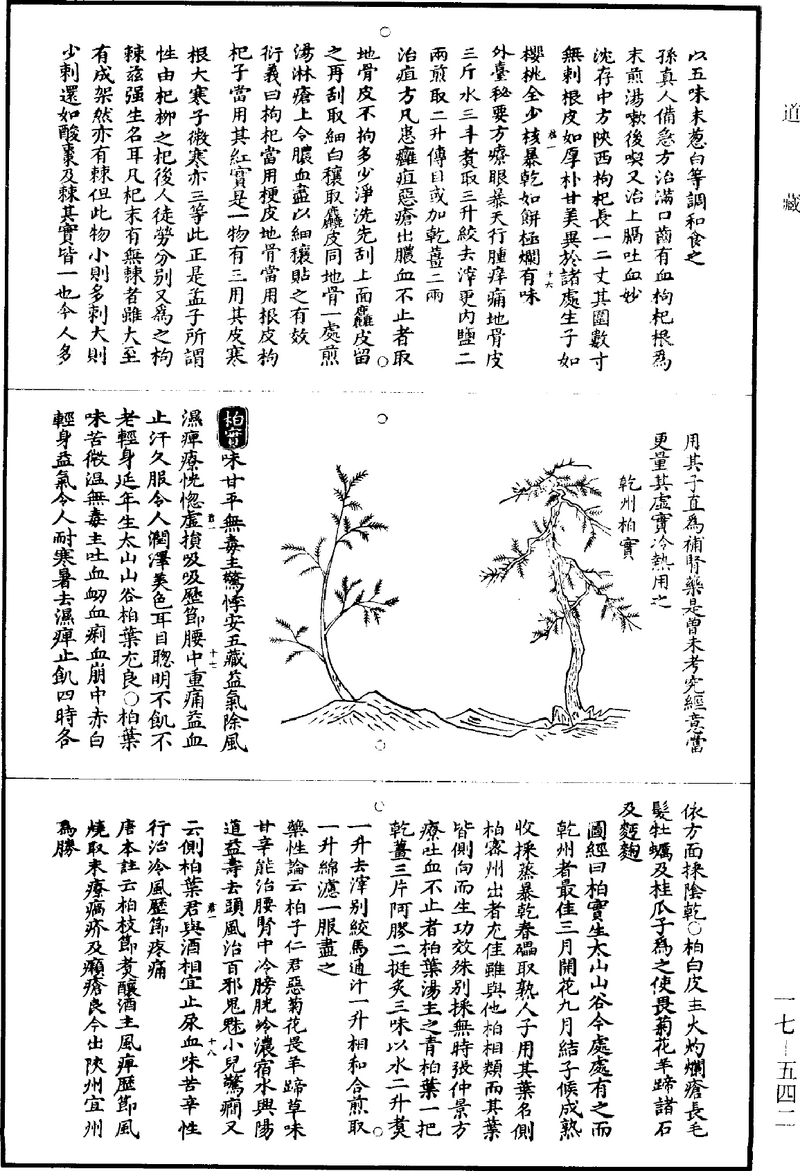 道藏
以五味末葱白等調和食之
孫真人備急方治滿口齒有血枸杞根爲
末煎湯嗽後喫又治上膈吐血妙
沈存中方陜西枸杞長一二丈其圍數寸
無刺根皮如厚朴甘美異於諸處生子如
櫻桃全少核暴乾如餅極爛有味
外臺秘要方療眼暴天行腫痒痛地骨皮
三斤水三斗煑取三升絞去滓更內鹽二
兩煎取二升傅目或加乾薑二兩
治疽方凡患癰疽惡瘡出膿血不止者取
地骨皮不拘多少淨洗先刮上面麤皮留
之再刮取細白穰取麤皮同地骨一處煎
湯淋瘡上令膿血盡以細穰貼之有效
衍義曰枸杞當用梗皮地骨當用根皮枸
杞子當用其紅實是一物有三用其皮寒
根大寒子微寒亦三等此正是孟子所謂
性由杞柳之杞後人徒勞分别又爲之枸
棘茲强生名耳凡杞末有無棘者雖大至
有成架然亦有棘但此物小則多刺大則
少刺還如酸棗及棘其實皆一也今人多
用其子直爲補腎藥是曾未考究經意當
更量其虛實冷熱用之
乾州柏實
柏實味甘平無毒主驚悸安五藏益氣除風
濕痺療恍惚虛損吸吸歷節腰中重痛益血
止汗久服令人潤澤美色耳目聰明不飢不
老輕身延年生太山山谷柏葉尤良○柏葉
味苦微温無毒主吐血衂血痢血崩中赤白
輕身益氣令人耐寒暑去濕痺止飢四時各
依方面採陰乾○柏白皮主火灼爛瘡長毛
髮牡蠣及桂瓜子爲之使畏菊花羊蹄諸石
及麪麴
圖經曰柏實生太山山谷今處處有之而
乾州者最佳三月開花九月結子候成熟
收採蒸暴乾舂礧取熟人子用其葉名側
柏密州出者尤佳雖與他柏相類而其葉
皆側向而生功效殊别採無時張仲景方
療吐血不止者柏葉湯主之青柏葉一把
乾薑三片阿膠二挺炙三味以水二升煑
一升去滓别絞馬通汁一升相和合煎取
一升綿濾一服盡之
藥性論云柏子仁君惡菊花畏羊蹄草味
甘辛能治腰腎中冷膀胱冷濃宿水興陽
道益壽去頭風治百邪鬼魅小兒驚癎又
云側柏葉君與酒相宜止尿血味苦辛性
行治冷風歷節疼痛
唐本註云柏枝節煑釀酒主風痺歷節風
燒取末療𤸷疥及癩瘡良今出陜州宜州
爲勝
一七—五四二